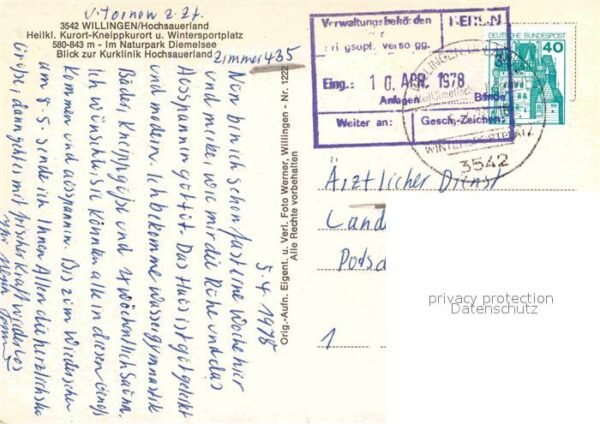 V. Tornow z. Zt.
3542 WILLINGEN/Hochsauerland
Heilkl. Kurort-Kneippkurort u. Wintersportplatz
580-843 m - Im Naturpark Diemelsee
Blick zur Kurklinik Hochsauerland
Zimmer 435
5.4.1978
Nun bin ich schon fast eine Woche hier
und merke, wie mir die Ruhe und das
Ausspannen gut tut. Das Haus ist gut geleitet
und modern. Ich bekomme Wassergymnastik
Bäder, Kneippgüsse und 2x wöchentlich Sauna.
Ich wünschte, Sie könnten alle in diesen Genuß
kommen und ausspannen. Bis zum Wiedersehen
am 8.5. sende ich Ihnen Allen die herzlichsten
Grüße, dann geht es mit frischer Kraft wieder los
Ihre
Orig.-Aufn. Eigent. u. Verl. Foto Werner, Willingen - Nr. 1222
Alle Rechte vorbehalten
Verwaltungsbehörden
BERLIN
Eing.: 10. APR. 1978
Anlagen Bände
Weiter an: Gesch.-Zeichen:
DEUTSCHE BUNDESPOST
40
WILLINGEN
WINTERSPORTPLATZ
3542
Ärztlicher Dienst
Land
Potsd
1
privacy protection
Datenschutz